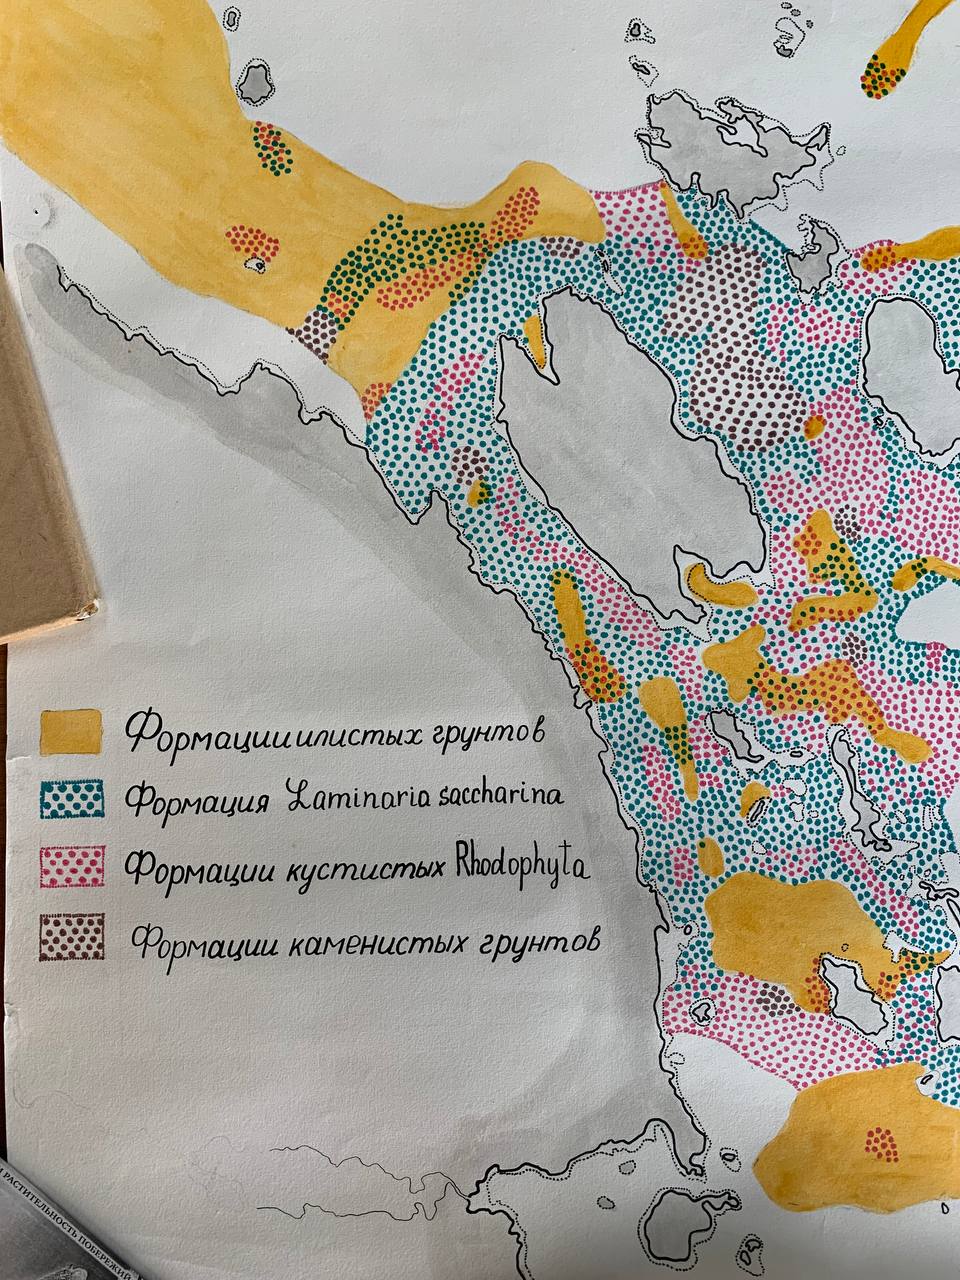 Формации илистых грунтов
Формация Laminaria saccharina
Формации кустистых Rhodophyta
Формации каменистых грунтов
РАСТИТЕЛЬНОСТЬ ПОБЕРЕЖИЙ